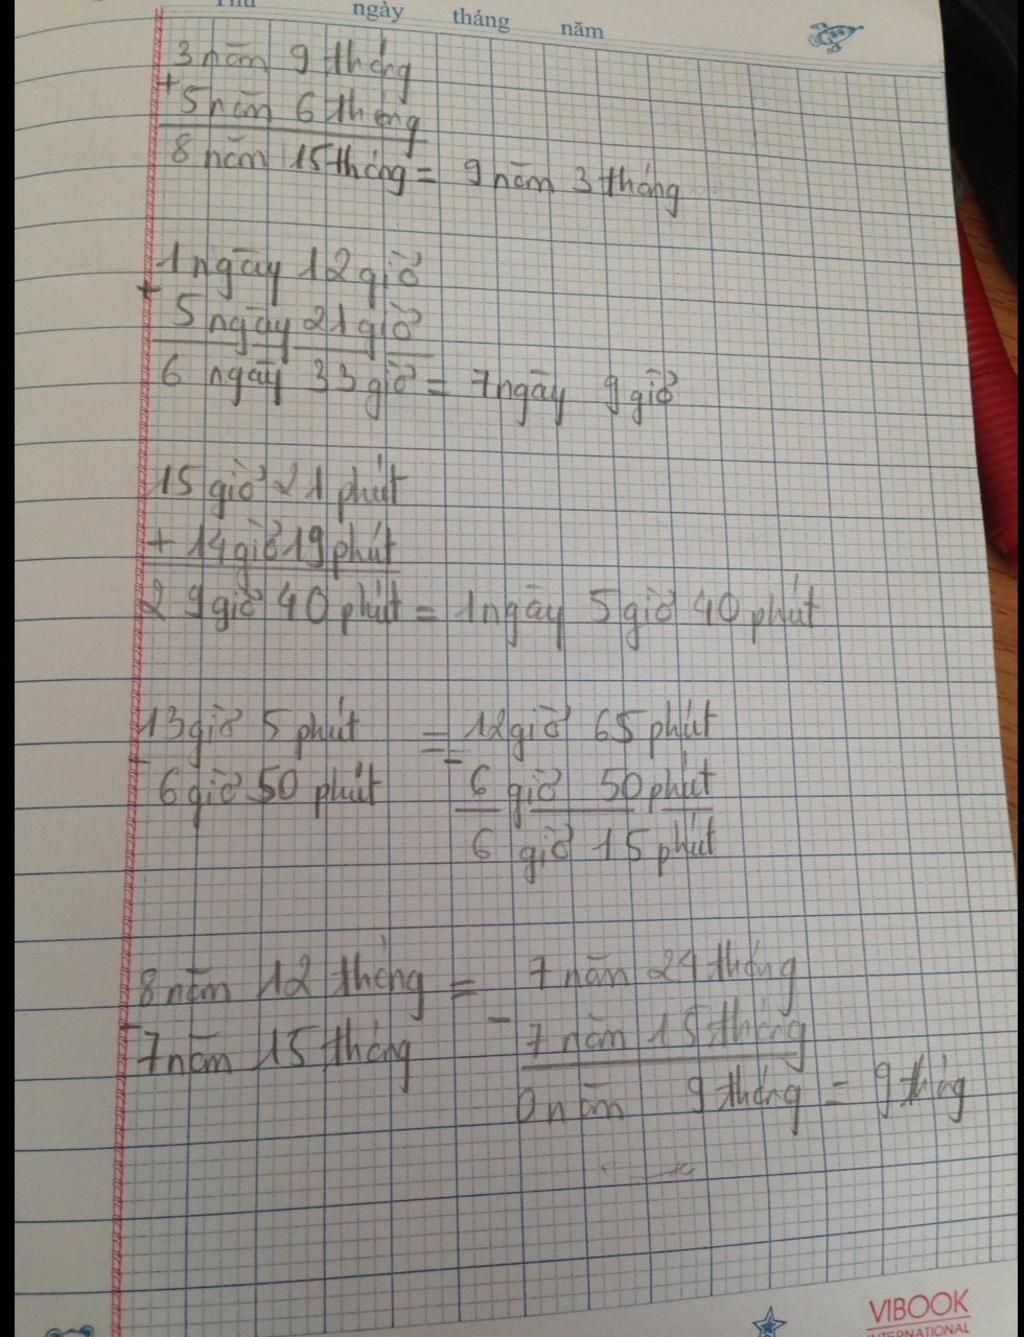 ngày tháng năm
3 năm 9 tháng
+
5 năm 6 tháng
8 năm 15 tháng = 9 năm 3 tháng
1 ngày 12 giờ
+
5 ngày 21 giờ
6 ngày 33 giờ = 7 ngày 9 giờ
15 giờ 21 phút
+ 14 giờ 19 phút
29 giờ 40 phút = 1 ngày 5 giờ 40 phút
13 giờ 5 phút = 12 giờ 65 phút
- -
6 giờ 50 phút 6 giờ 50 phút
6 giờ 15 phút
8 năm 12 tháng = 7 năm 24 tháng
- -
7 năm 15 tháng 7 năm 15 tháng
0 năm 9 tháng = 9 tháng
VIBOOK
INTERNATIONAL